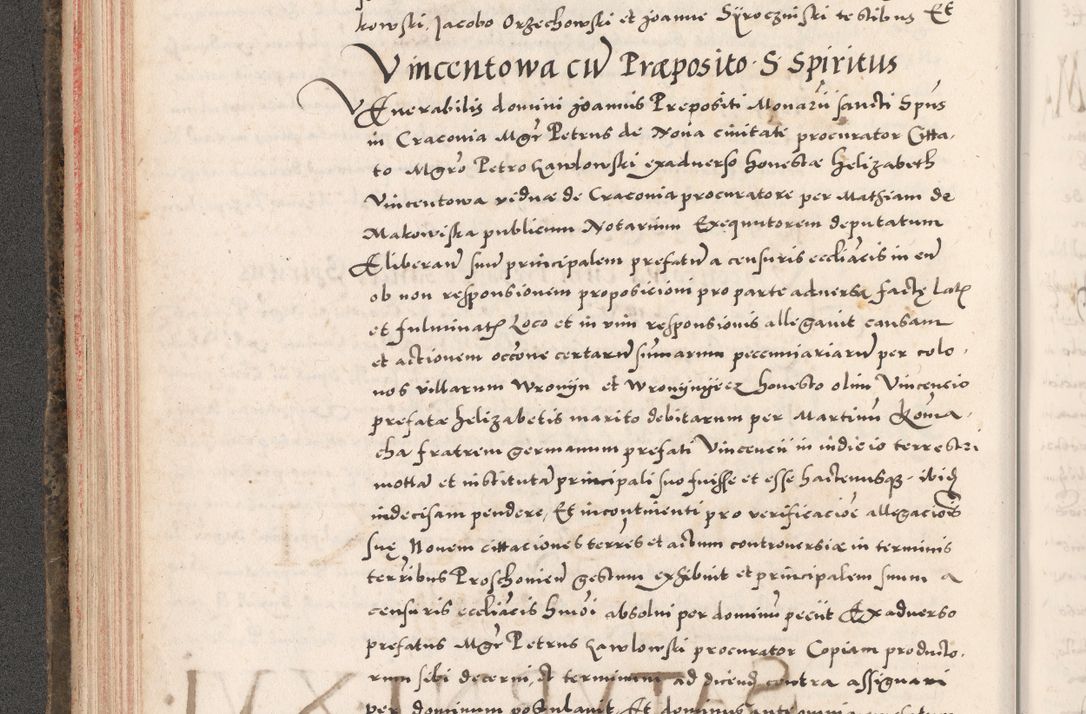 kowski, Jacobo Orzechowski et Joanne Syroczniski testibus Et
Vincentowa cū Præposito S Spiritus
VEnerabilis domini Joannis Prepositi Monarii sancti Spūs
in Cracovia Mgr̄ Petrus de Nova civitate procurator Citta,
to Mgrō Petro Kawlowski exadverso honestæ Helizabeth
Vincentowa viduæ de Cracovia procuratore per Mathiam de
Makowiska publicum Notarium Exequutorem deputatum
Eliberarū suū principalem prefatū a censuris eccliācis in eū
ob non responsionem proposicioni pro parte adversa
et fulminat Loco et in vim responsionis allegavit causam
et actionem occōne certarū sum̄arum pecuniariarū per colo,
nos villarum Wronyn et Wronynyecz honesto olim Vincencio
prefatæ Helizabetis marito debitarum per Martinū Koma,
cha fratrem germanum prefati Vincencii in iudicio terrestri
motā et institutā principali suo fuisse et esse hactenusque ibid
indecisam pendere, Et incontinenti pro verificacioē allegaciois
suę Novem cittaciones terrēs et actum controversiæ in terminis
terribus Proschovien gestum exhibuit et principalem suum a
censuris eccliācis hmōi absolvi per dominū peciit Ex adverso
prefatus Mgr̄ Petrus Kawlowski procurator Copiam producto,
rum sibi decerni, et terminum ad dicend contra assignari
per dominum postulavit Et dominus